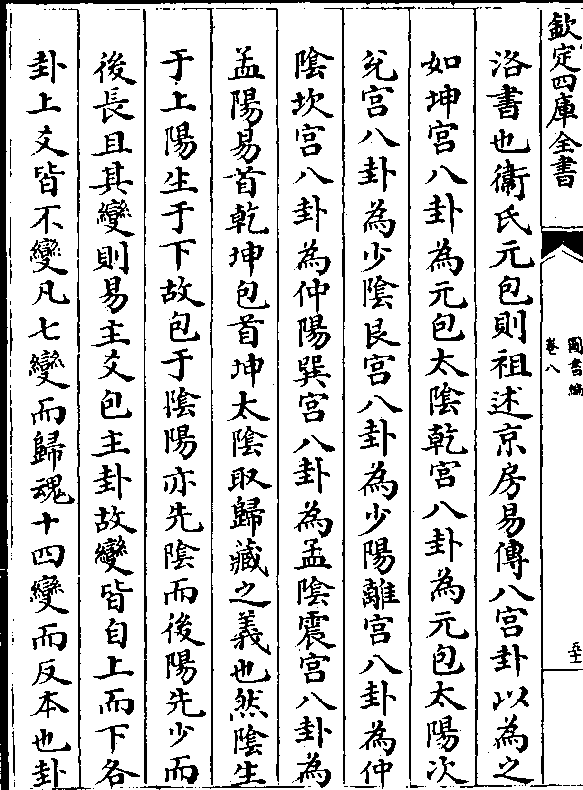 欽定四庫全書
圖書編
卷八
五十一
洛書也衞氏元包則祖述京房易傳八宫卦以為之
如坤宫八卦為元包太陰乾宫八卦為元包太陽次
兊宫八卦為少陰艮宫八卦為少陽離宫八卦為仲
陰坎宫八卦為仲陽巽宫八卦為孟陰震宫八卦為
孟陽易首乾坤包首坤太陰取歸藏之義也然陰生
于上陽生于下故包于陰陽亦先陰而後陽先少而
後長且其變則易主爻包主卦故變皆自上而下各
卦上爻皆不變凡七變而歸魂十四變而反本也卦